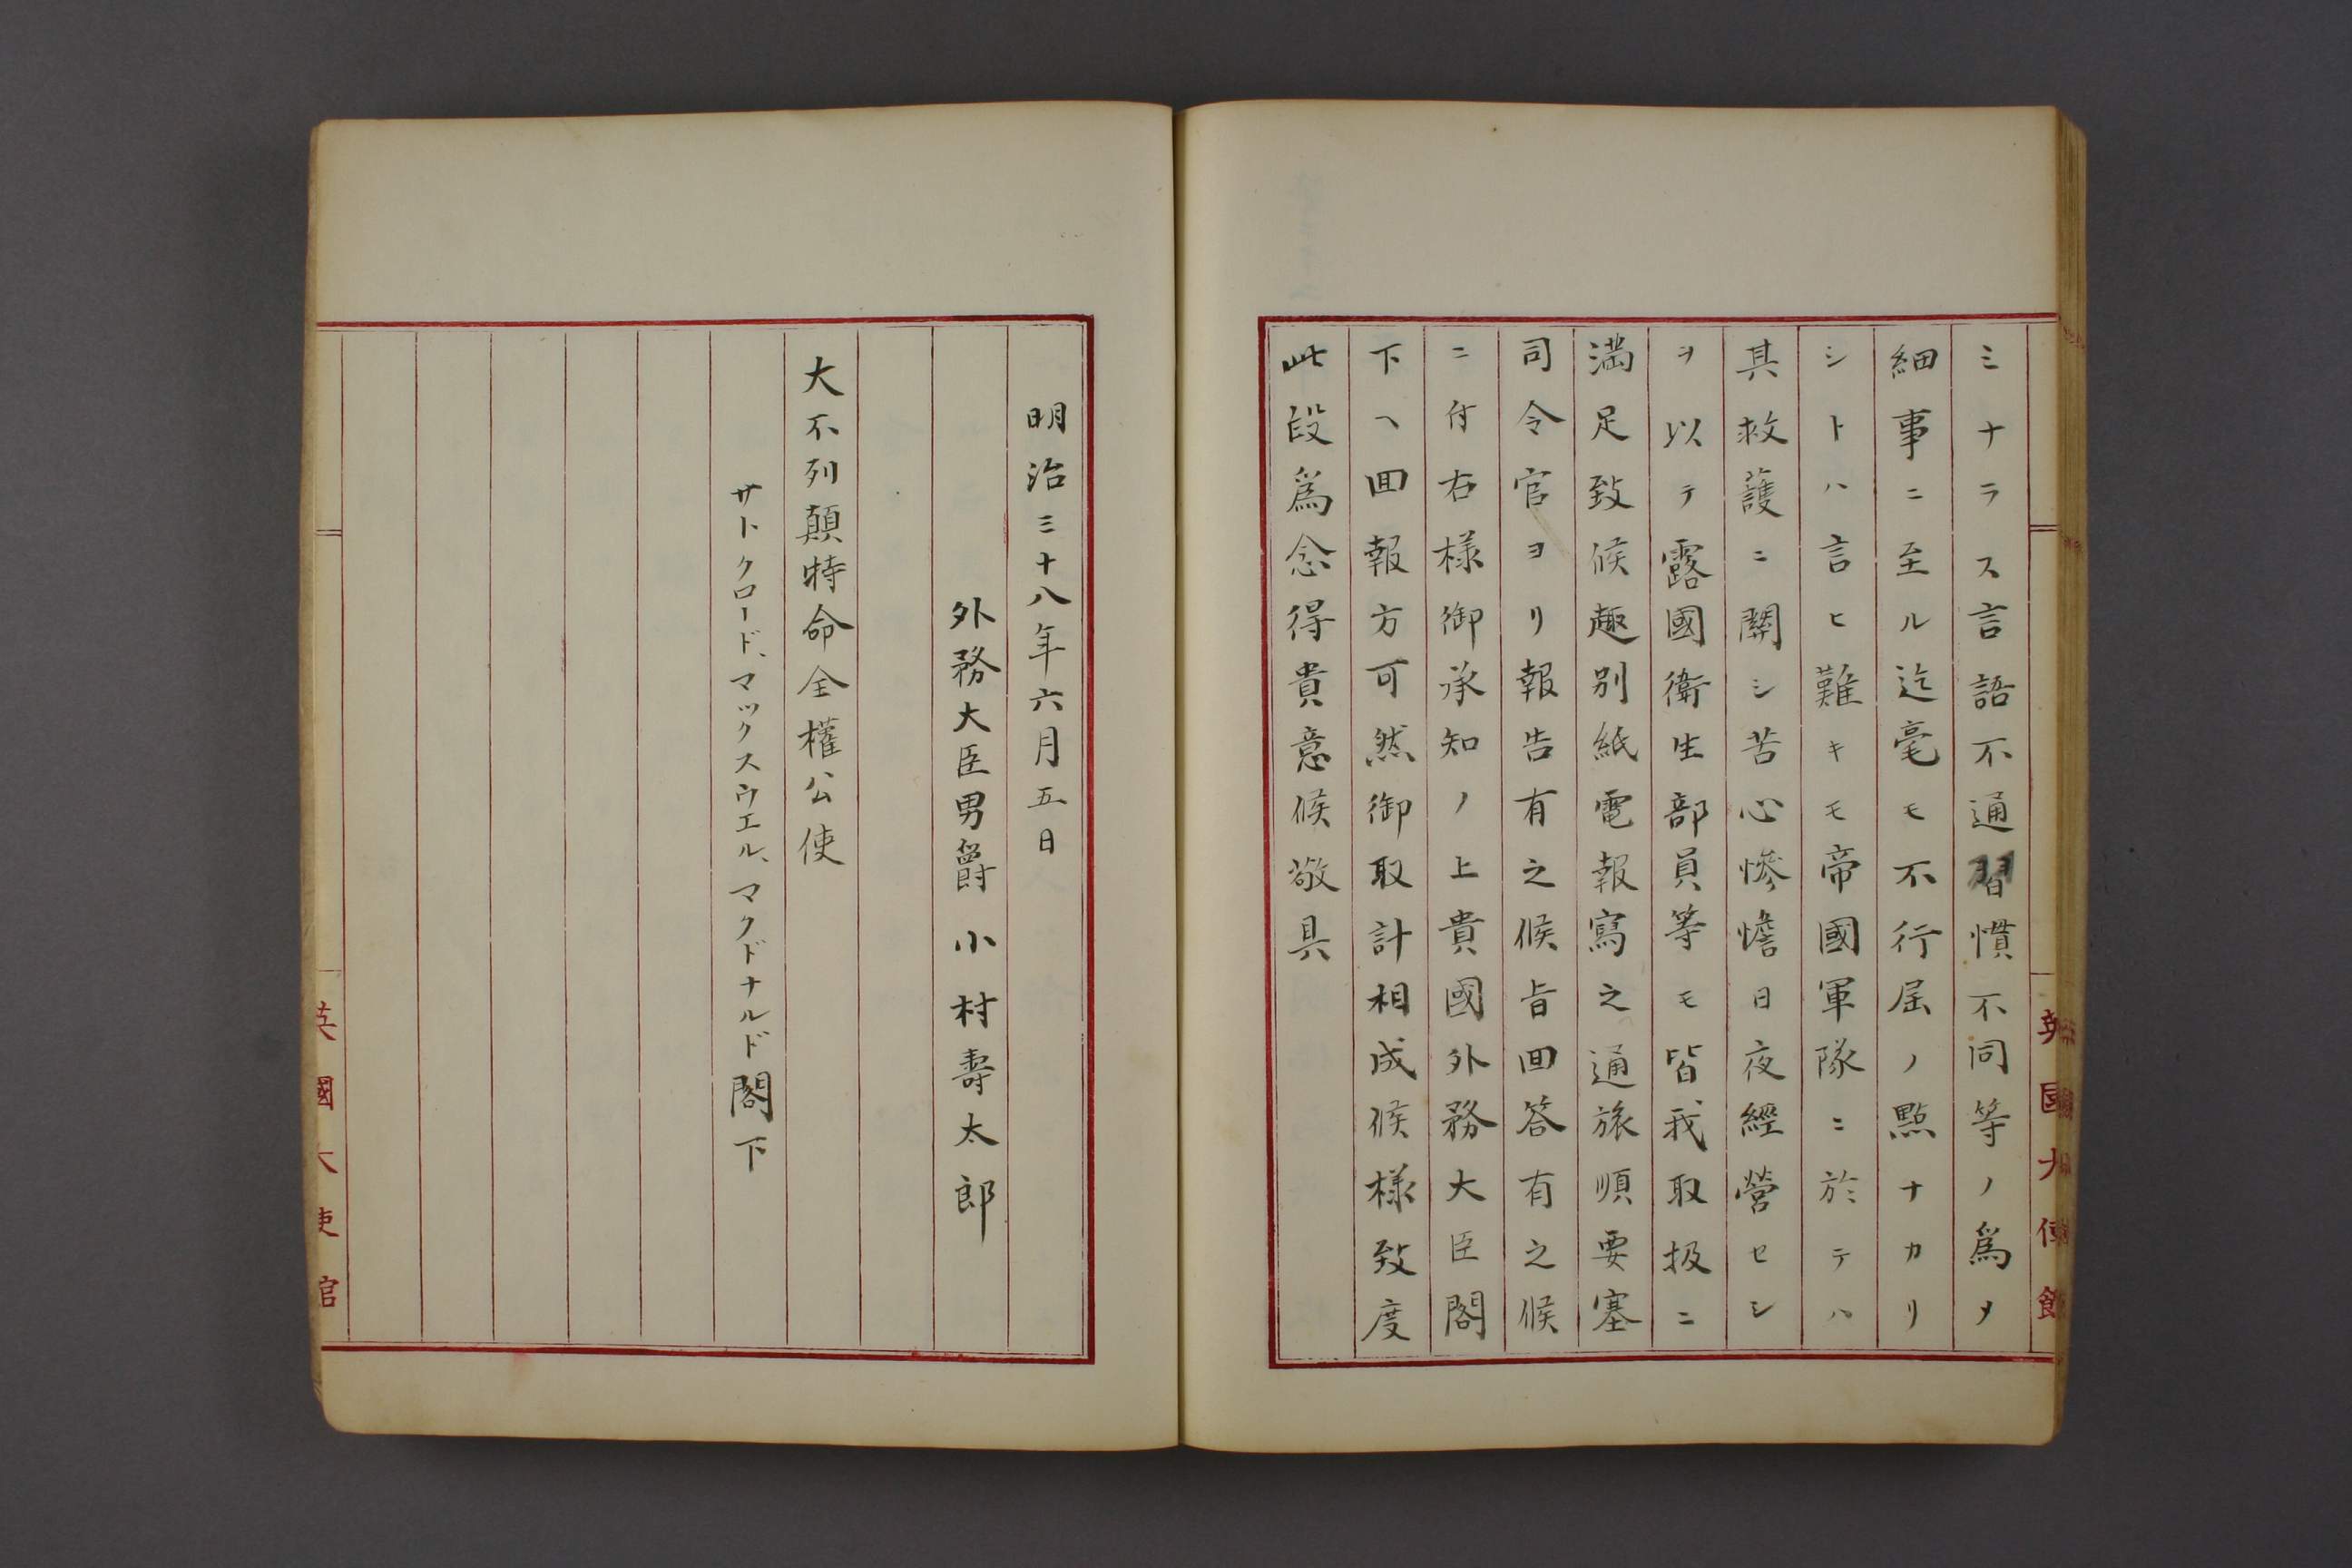 英國大使館
ミナラス言語不通習慣不同等ノ爲メ
細事ニ至ル迄毫モ不行届ノ點ナカリ
シトハ言ヒ難キモ帝國軍隊ニ於テハ
其救護ニ關シ苦心慘憺日夜經營セシ
ヲ以テ露國衛生部員等モ皆我取扱ニ
満足致候趣別紙電報寫之通旅順要塞
司令官ヨリ報告有之候旨回答有之候
ニ付右様御承知ノ上貴國外務大臣閣
下ヘ回報方可然御取計相成候様致度
此段爲念得貴意候敬具
明治三十八年六月五日
外務大臣男爵小村壽太郎
大不列顛特命全權公使
サトクロード、マックスウエル、マクドナルド閣下
英國大使館